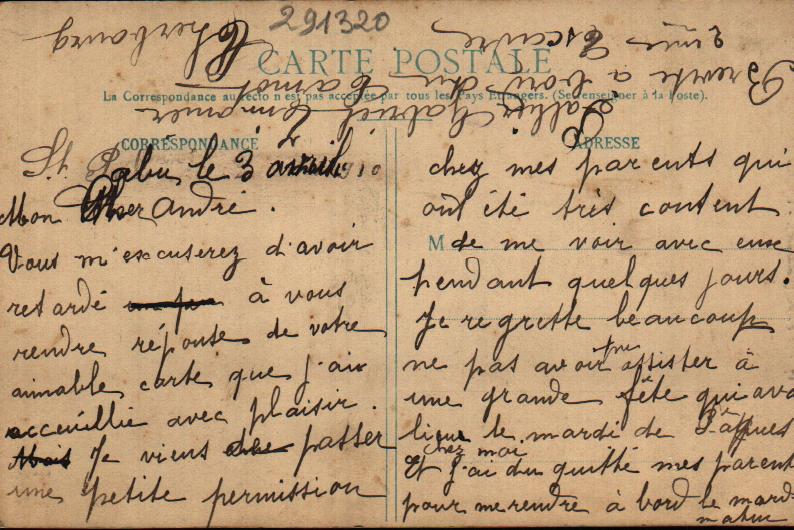 291320
CARTE POSTALE
La Correspondance au recto n'est pas acceptée par tous les Pays Etrangers. (Se renseigner à la Poste).
CORRESPONDANCE
ADRESSE
M
St Pabu, le 3 avril 1910
Mon Cher André.
Vous m'escuserez d'avoir
retardé à vous
rendre réponse de votre
aimable carte que j'ai
acceuillie avec plaisir.
Mais Je viens de passer
une petite permission
chez mes parents qui
ont été très content
de me voir avec eux
pendant quelques jours.
Je regrette beaucoup
ne pas avoir assister à
une grande fête qui ava
lieue le mardi de Pâques
chez moi
Et j'ai du quitté mes parent
pour me rendre à bord le mardi
matin
Gabriel
Breveté à bord du Carnot
Cherbourg